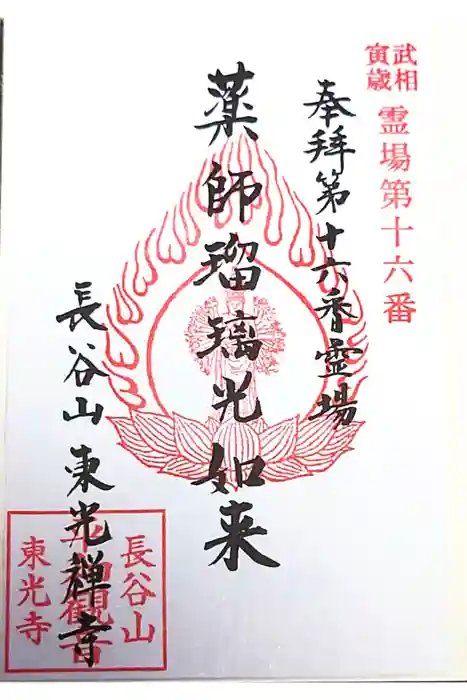 武相
寅歳
霊場第十六番
奉拜第十六番霊場
薬師瑠璃光如来
長谷山東光禅寺
長谷山
観音
東光寺